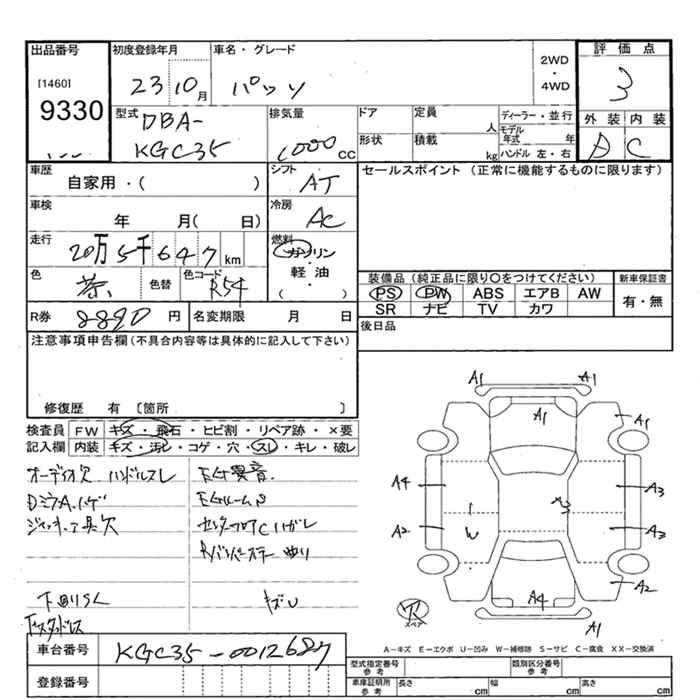 出品番号 初度登録年月 車名・グレード 評価点
[1460] 23 10月 パッソ 2WD・4WD 3
9330
型式 DBA-KGC35 排気量 1000cc ドア 定員 人 ディーラー・並行 外装 内装
形状 積載 kg モデル年式 年 ハンドル 左・右 D C
車歴 自家用・( ) シフト AT セールスポイント (正常に機能するものに限ります)
車検 年 月( 日) 冷房 AC
走行 20万5千647km 燃料 ガソリン・軽・油・( )
色 茶 色替 色コード R54 装備品 (純正品に限り○をつけてください) 新車保証書
PS PW ABS エアB AW 有・無
SR ナビ TV カワ
R券 8890円 名変期限 月 日 後日品
注意事項申告欄(不具合内容等は具体的に記入して下さい)
修復歴 有 [箇所 ]
検査員 FW キズ・飛石・ヒビ割・リペア跡・×要
記入欄 内装 キズ・汚レ・コゲ・穴・スレ・キレ・破レ
オーディオ欠 ハンドルスレ E/G異音
DミラA.ハゲ
ジャッキ
下回りS
キズU
A1 A1
A1 A1
A4 A3 A3
A2 W A3
A4 A2
スペア A1
A-キズ E-エクボ U-凹み W-補修跡 S-サビ C-腐食 XX-交換済
車台番号 KGC35-0012687
型式指定番号 参考 類別区分番号 参考
登録番号 車庫証明所 参考 長さ cm 幅 cm 高さ cm